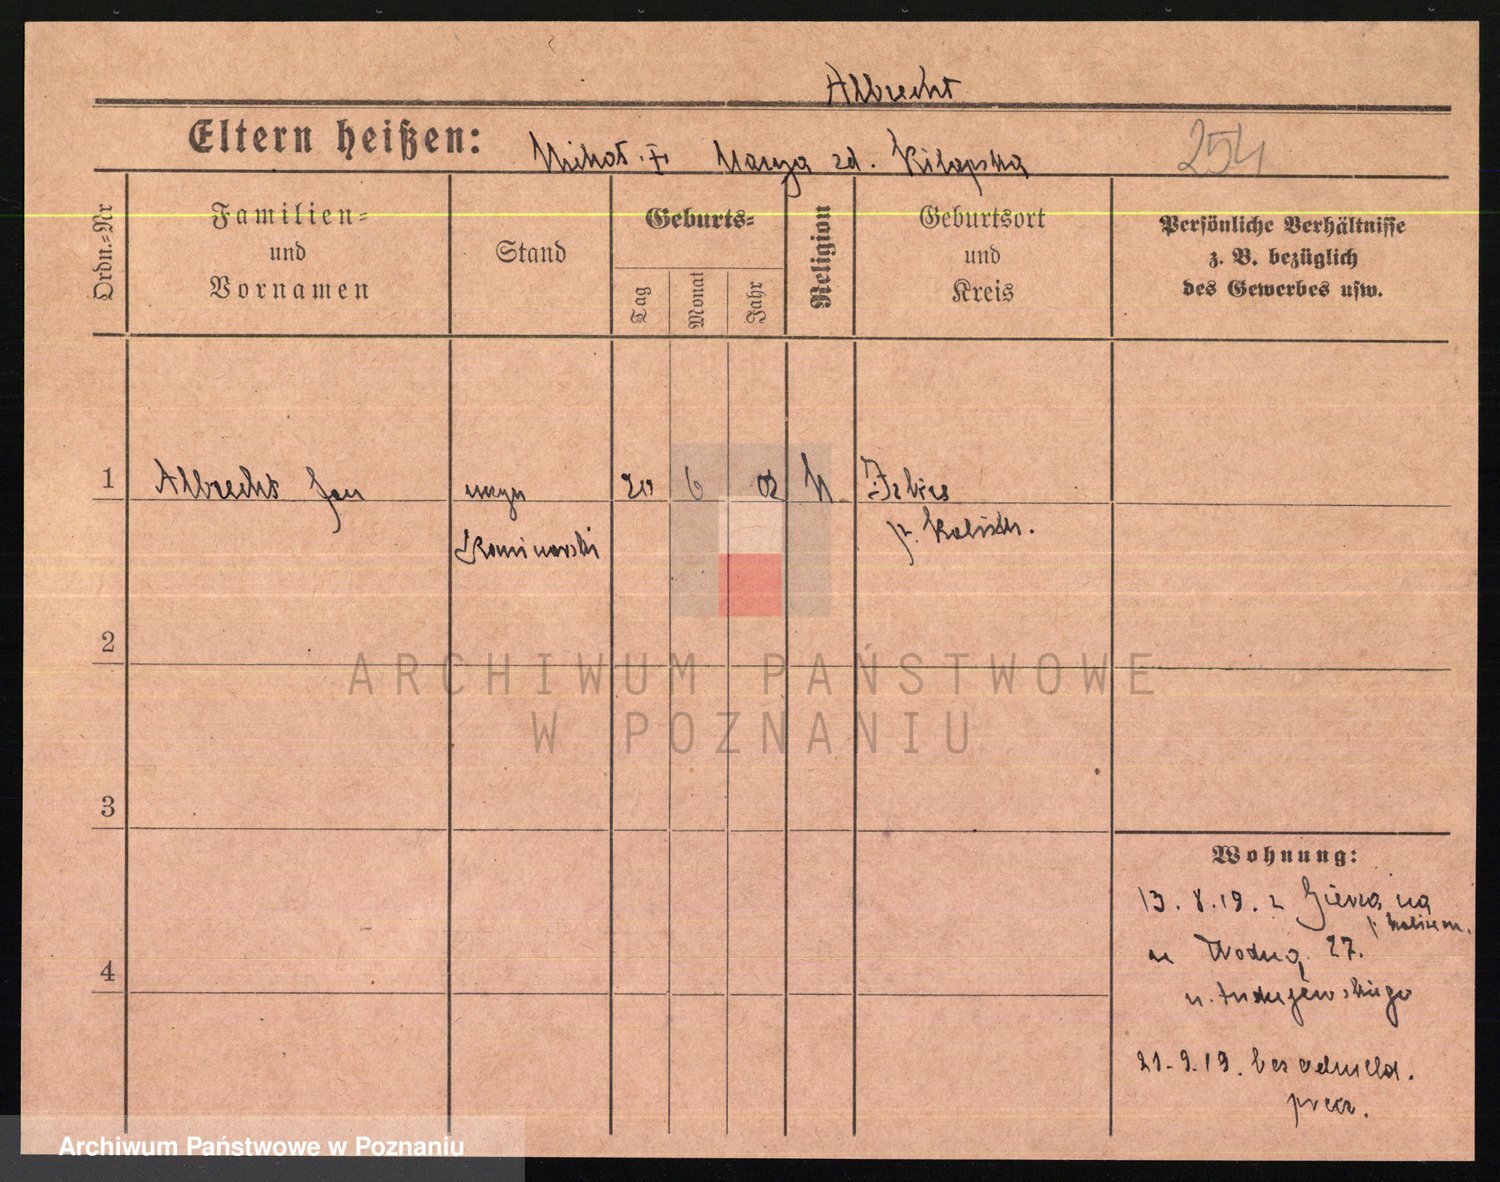 Albrecht
Eltern heißen: Michał † Marya zd. Kilapska
254
Ordn.=Nr
Familien=
und
Vornamen
Stand
Geburts=
Tag
Monat
Jahr
Religion
Geburtsort
und
Kreis
Persönliche Verhältnisse
z. B. bezüglich
des Gewerbes usw.
1
Albrecht Jan
6
02
p. Kalisch.
2
3
4
ARCHIWUM PAŃSTWOWE
W POZNANIU
Wohnung:
13. 8. 19. z
Wodną 27.
u. Andrzejewskiego
21. 9. 19. bez odmeld.
precz.
Archiwum Państwowe w Poznaniu